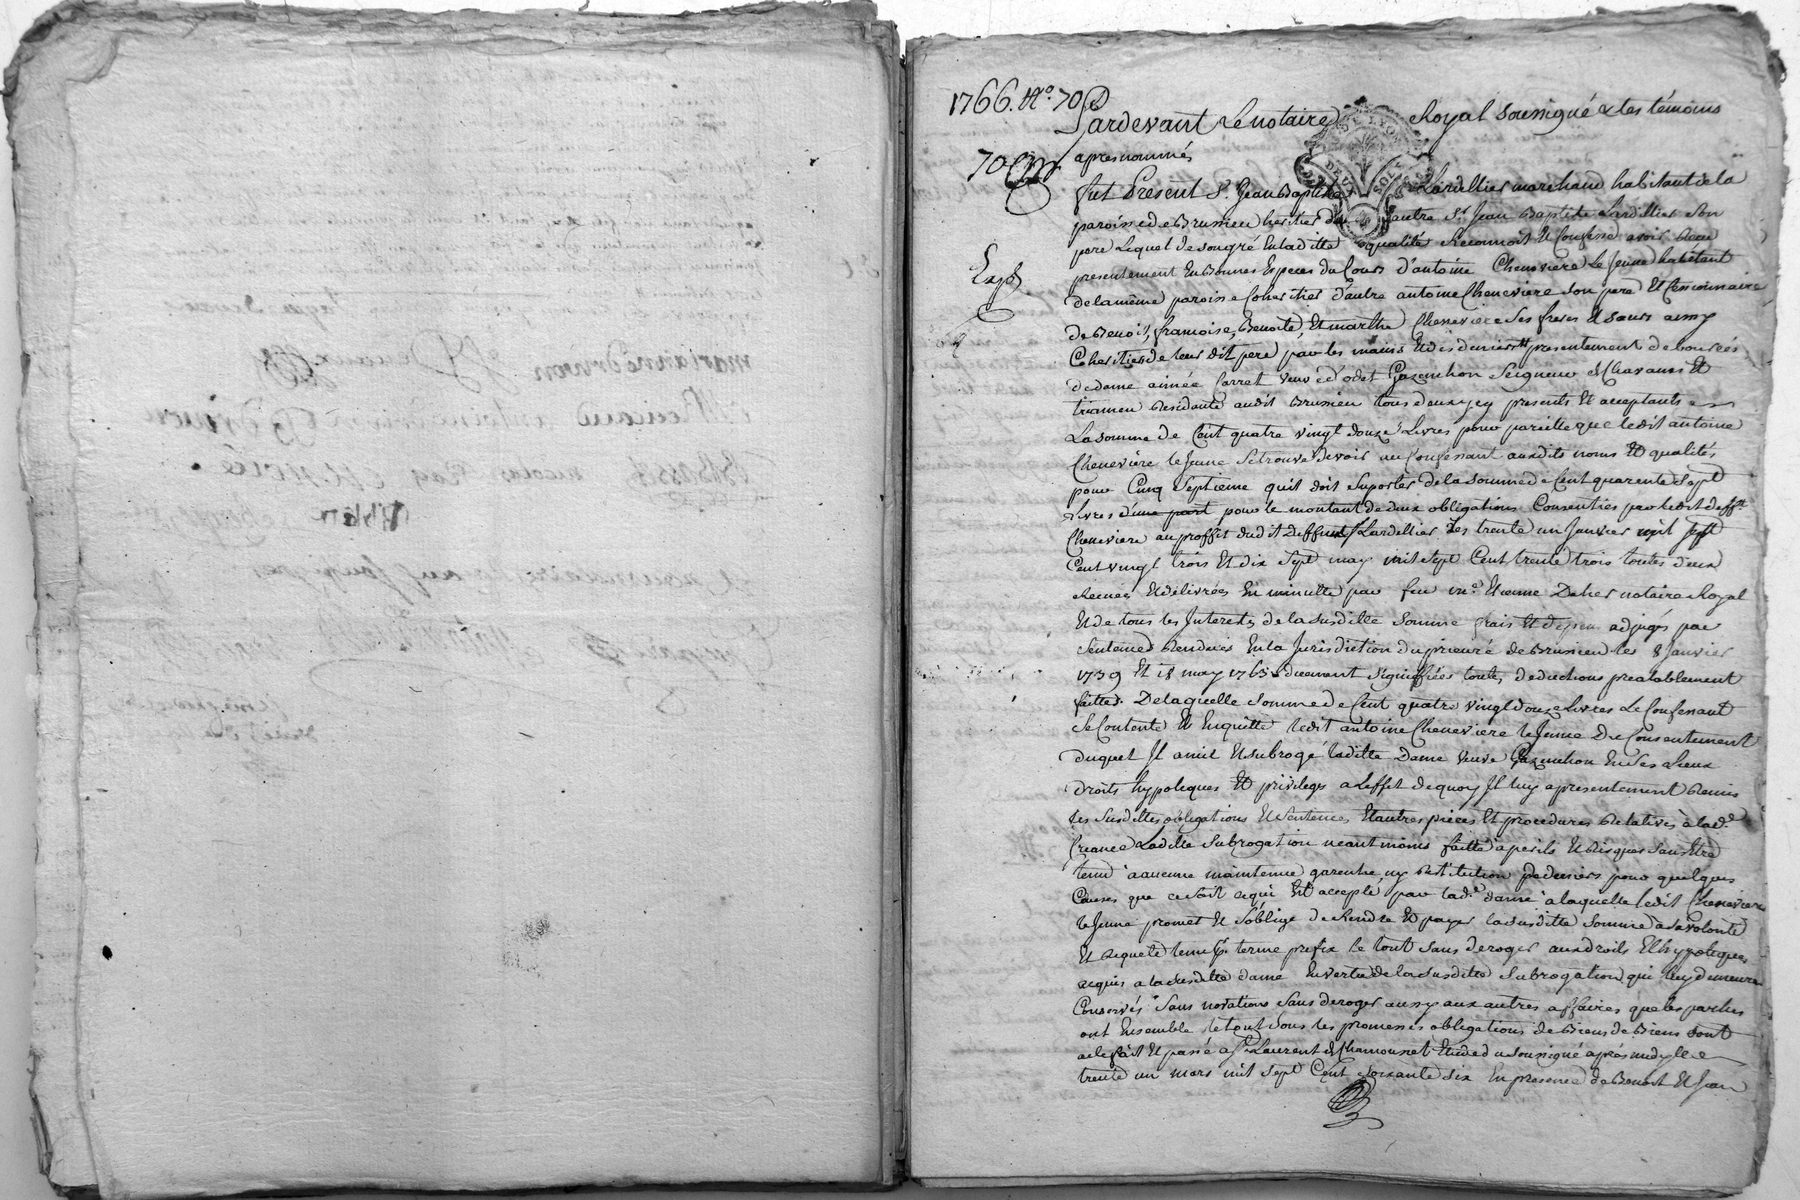 1766. N.º 70
Pardevant Le notaire Royal soussigné & les témoins
70
apres nommés
DE LYON
DEUX SOLS
fut Present Sr. Jean Baptiste Lardellier marchand habitant de la
paroisse de Brussieu heritier d'autre Sr. Jean Baptiste Lardellier son
pere Lequel de son gré En laditte qualité Reconnoit Et Confesse avoir Reçu
Exp
presentement En Bonnes Especes du Cours d'antoine Cheneviere Le Jeune habitant
de la même paroisse Coheritier d'autre antoine Cheneviere son pere Et Cessionnaire
de Benoit, francoise, Benoite, Et marthe Cheneviere ses freres Et sœurs aussy
Coheritiers de leur dit pere par les mains Et des deniers presentement deboursés
de dame aimée Carret veuve d'odet Gazanchon Seigneur de Chavanes Et
triamen Residante audit Brussieu tous deux jcy presents Et acceptants
La somme de Cent quatre vingt douze Livres pour pareille que ledit antoine
Cheneviere le Jeune se trouve devoir au Confessant auxdits noms Et qualités
pour Cinq Septieme quil doit suporter de la somme de Cent quarente sept
Livres d'une part pour le montant de deux obligations Consenties par ledit defft.
Cheneviere au proffit dudit deffunt Sr Lardellier Les trente un Janvier mil sept
Cent vingt trois Et dix sept may mil sept Cent trente trois toutes deux
receues Et délivrées En minutte par feu me. Etienne Dehes notaire Royal
Et de tous les Interests de la susditte somme frais Et depens adjugés par
sentences Rendues En la Jurisdiction du prieuré de Brussieu les 8 Janvier
1739 Et 18 may 1763 duement signiffiées toutes deductions prealablement
faittes. De laquelle somme de Cent quatre vingt douze Livres Le Confessant
se Contente Et Enquitte ledit antoine Cheneviere le Jeune Du Consentement
duquel Il a mit Et subrogé laditte Dame veuve Gazanchon En ses Lieux
droits hypoteques Et privileges a Leffet de quoy Il luy a presentement Remis
les susdittes obligations Et sentences Et autres pieces Et procedures Relatives à lade.
Creance Laditte subrogation neantmoins faitte à perils Et Risques sans Etre
tenu à aucune maintenue garentie ny Restitution de deniers pour quelques
Causes que ce soit ce qui Est accepté par lade. dame à laquelle ledit Cheneviere
le Jeune promet Et s'oblige de Rendre Et payer la susditte somme à sa volonté
Et Requete terme prefix le tout sans deroger aux droits Et hypoteques
acquis a la susditte dame En vertu de la susditte subrogation qui luy demeurent
Conservés sans novation sans deroger aussy aux autres affaires que les parties
ont Ensemble le tout sous les promesses obligations de Biens de Biens Dont
acte fait Et passé a St Laurent de Chamousset Etude du soussigné après midy le
trente un mars mil sept Cent soixante six En presence de Benoit Et Jean